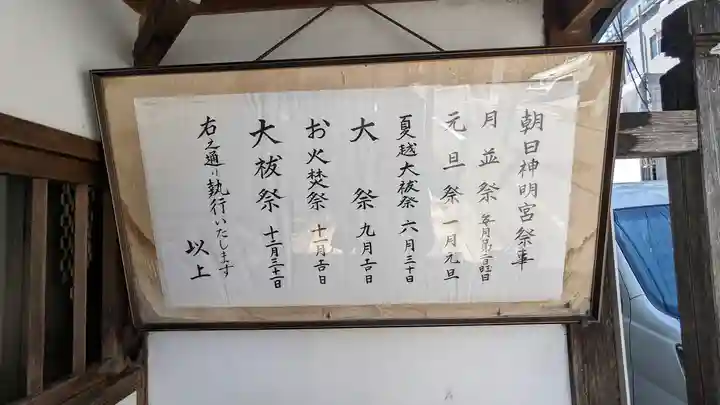 朝日神明宮祭事
月並祭 毎月第二日曜日
元旦祭 一月元旦
夏越大祓祭 六月三十日
大祭 九月
お火焚祭 十一月
大祓祭 十二月三十一日
右之通り執行いたします
以上